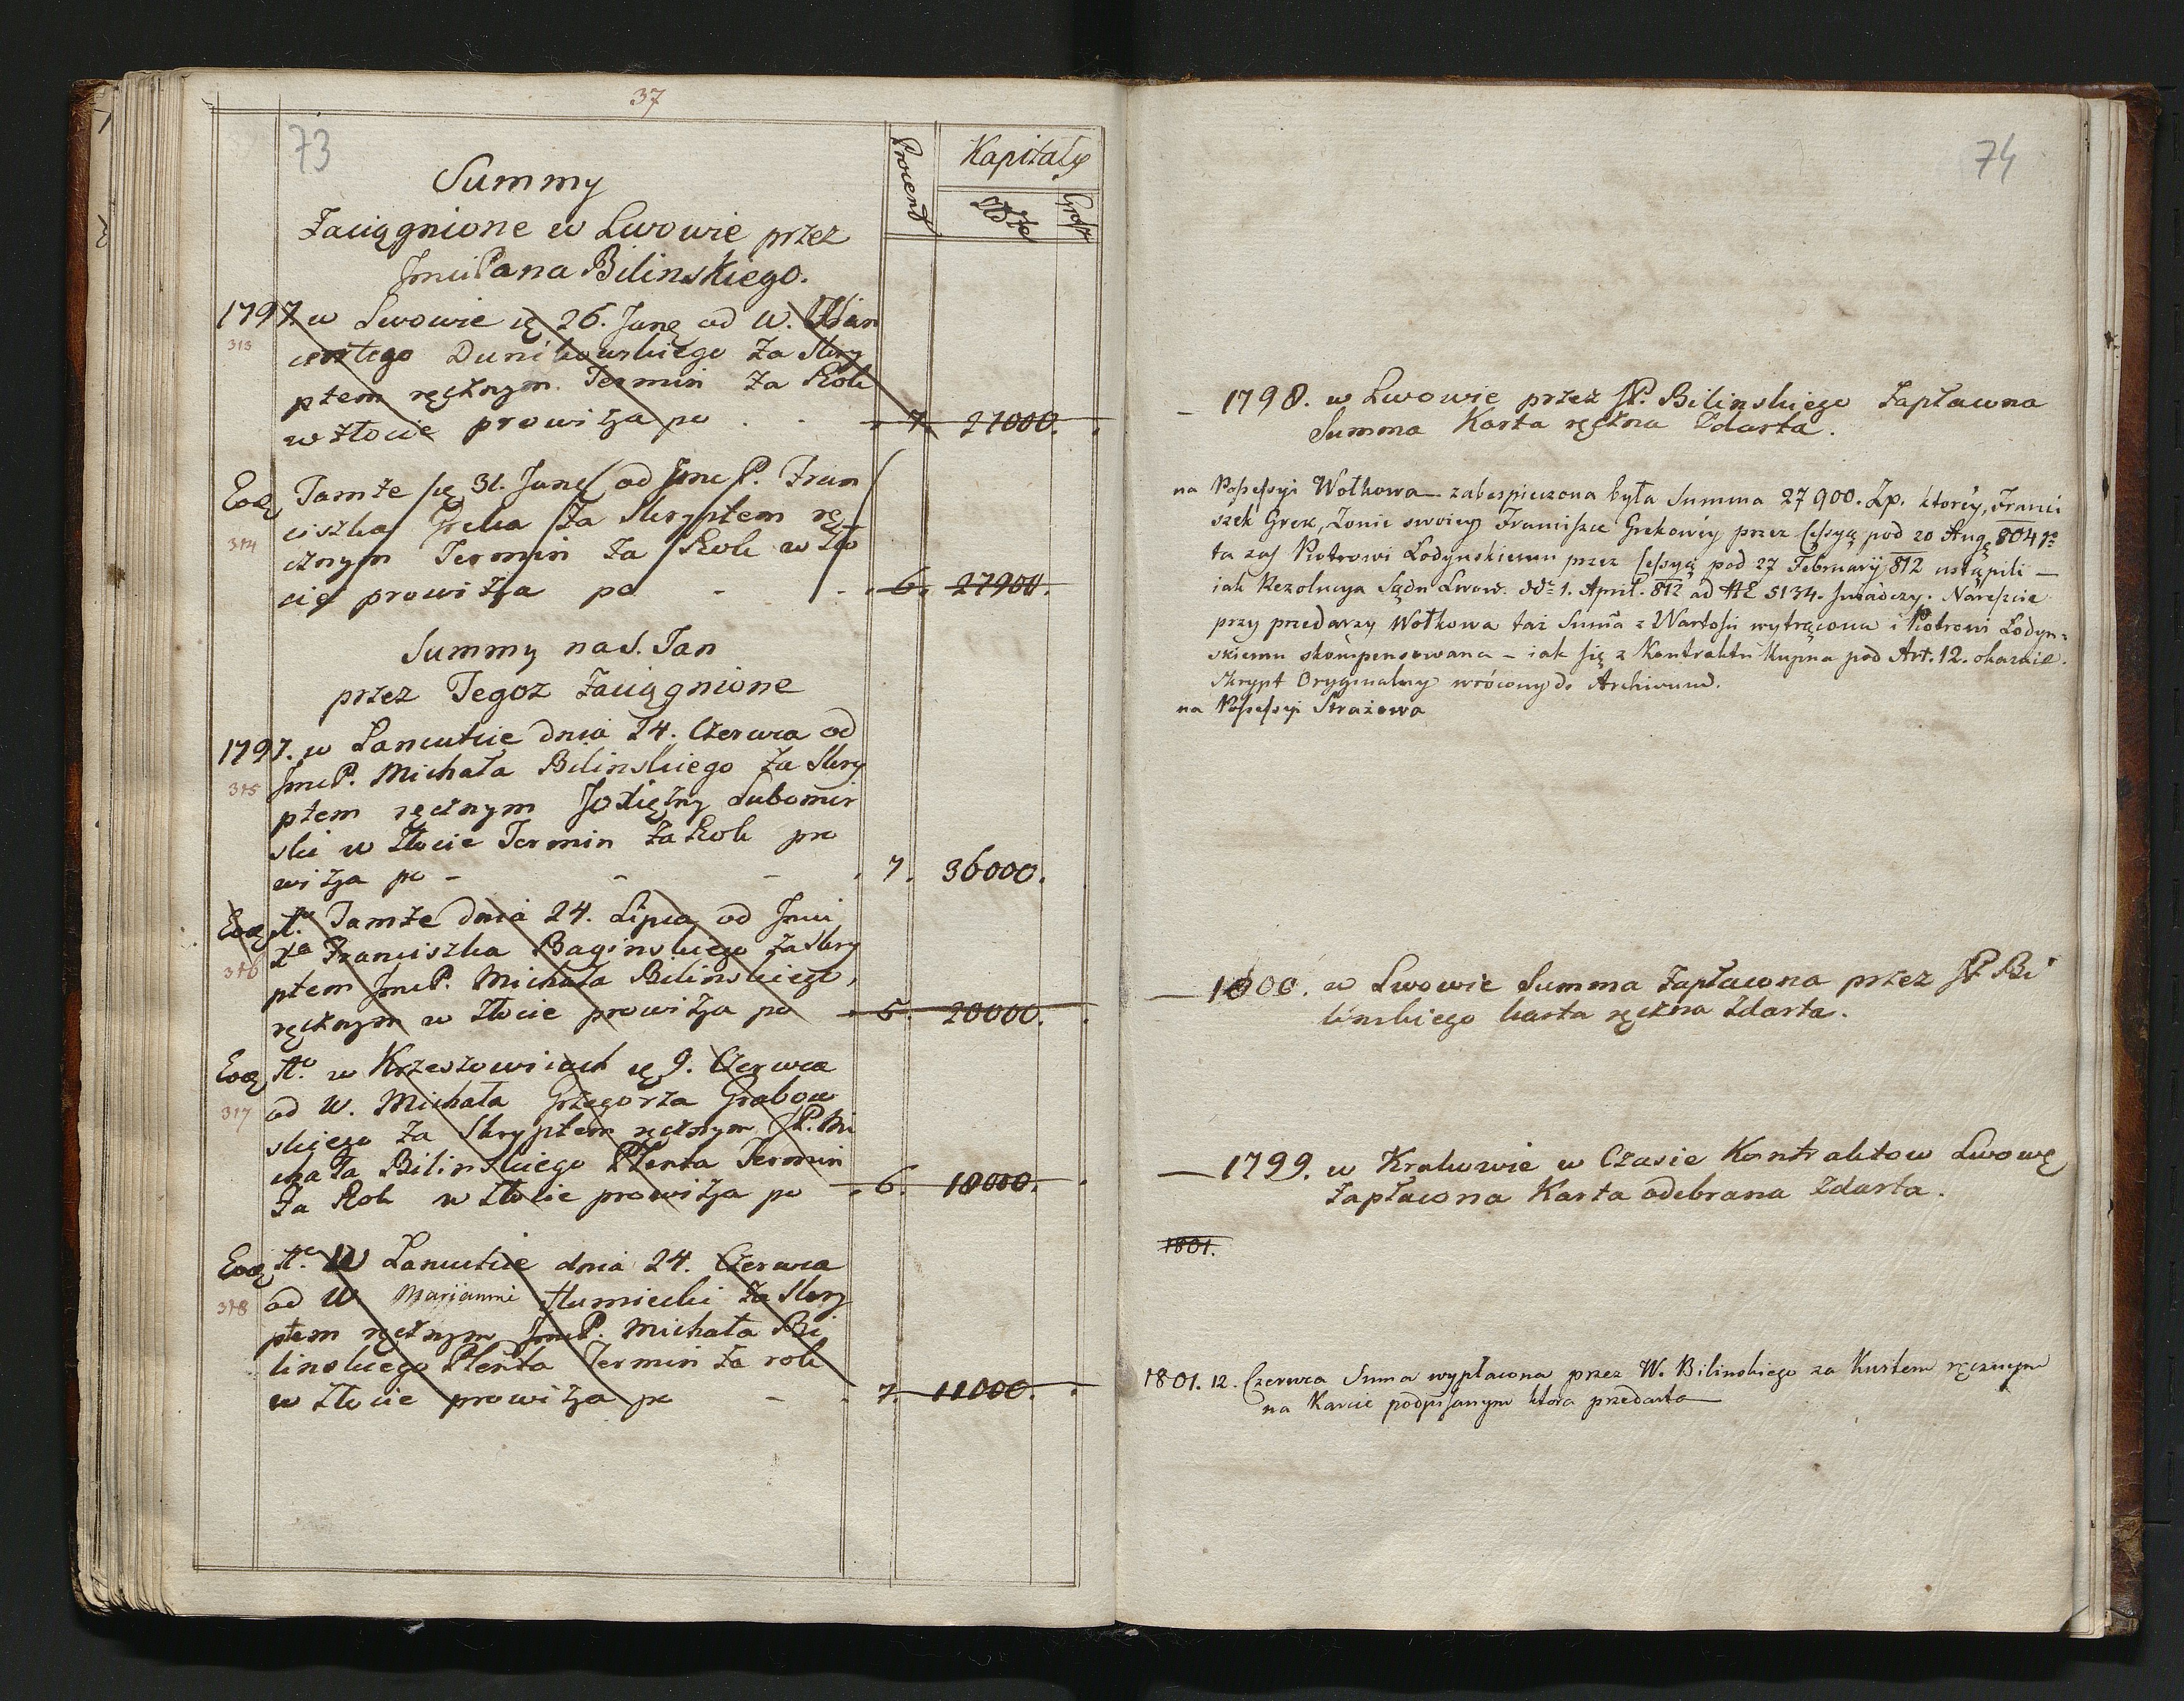 37
73
Procent
Kapitały
Złote
Grosz
Summy
Zaciągnione w Lwowie przez
JmciPana Bilinskiego.
1797. w Lwowie 26. Juny od W.
313
Dunikowskiego Za Skry
ptem ręcznym Termin Za Rok
w Złocie prowizya po . . 7. 27000.
Eod. Tamże 31. Juny od Jmc P. Fran
314
ciszka Greka Za Skryptem rę
cznym Termin Za Rok w Zło
cie prowizya po - . 6. 27900.
Summy na S. Jan
przez Tegoz Zaciągnione
1797. w Lancutie dnia 24. Czerwca od
315
JmcP. Michała Bilinskiego Za Skry
ptem ręcznym Xcia Lubomir
ski w Złocie Termin Za Rok pro
wizya po - - - . 7. 36000.
Eod. A° Tamże dnia 24. Lipca od Jmci
316
Xa Franciszka Baginskiego Za Skry
ptem JmcP. Michała Bilinskiego,
ręcznym w Złocie prowizya po . 5. 20000.
Eod. A° w Krzeszowicach 9. Czerwca
317
od W. Michała Grzegorza Grabow
skiego Za Skryptem ręcznym JP. Mi
chała Bilinskiego Plenta Termin
Za Rok w Złocie prowizya po . 6. 18000.
Eod. A° W Lancutie dnia 24. Czerwca
318
od W. Marjanni Humiecki Za Skry
ptem ręcznym JmcP. Michała Bi
linskiego Plenta Termin Za rok
w Złocie prowizya po - . 7. 11000.
74
– 1798. w Lwowie przez JP. Bilinskiego Zapłacona
Summa Karta ręczna Zdarta.
na Possessyi Wołkowa zabespieczona była Summa 27900. Zp. ktorey, Franci
szek Grek, Zonie swoiey Franciszce Grekowey przez Cessyą pod 20 Aug. 804
ta zas Piotrowi Łodynskiemu przez Cessyą pod 27 February 812 ustąpili —
iak Rezolucya Sądu Lwow. dd° 1. April. 812 ad NE 5134. swiadczy. Nareszcie
przy przedarzy Wołkowa taż Suma z Wartosci wytrącona i Piotrowi Łodyn=
skiemu skompensowana – iak się z Kontraktu Kupna pod Art. 12. okazuie.
Skrypt Oryginalny wrócony do Archiwum.
na Possessyi Strażowa
— 1800. w Lwowie Summa Zapłacona przez JP Bi
linskiego karta ręczna Zdarta.
— 1799. w Krakowie w Czasie Kontraktow Lwow.
Zapłacona Karta odebrana Zdarta.
1801.
1801. 12. Czerwca Suma wypłacona przez W. Bilinskiego za Kwitem ręcznym
na Karcie podpisanym ktora przedarta